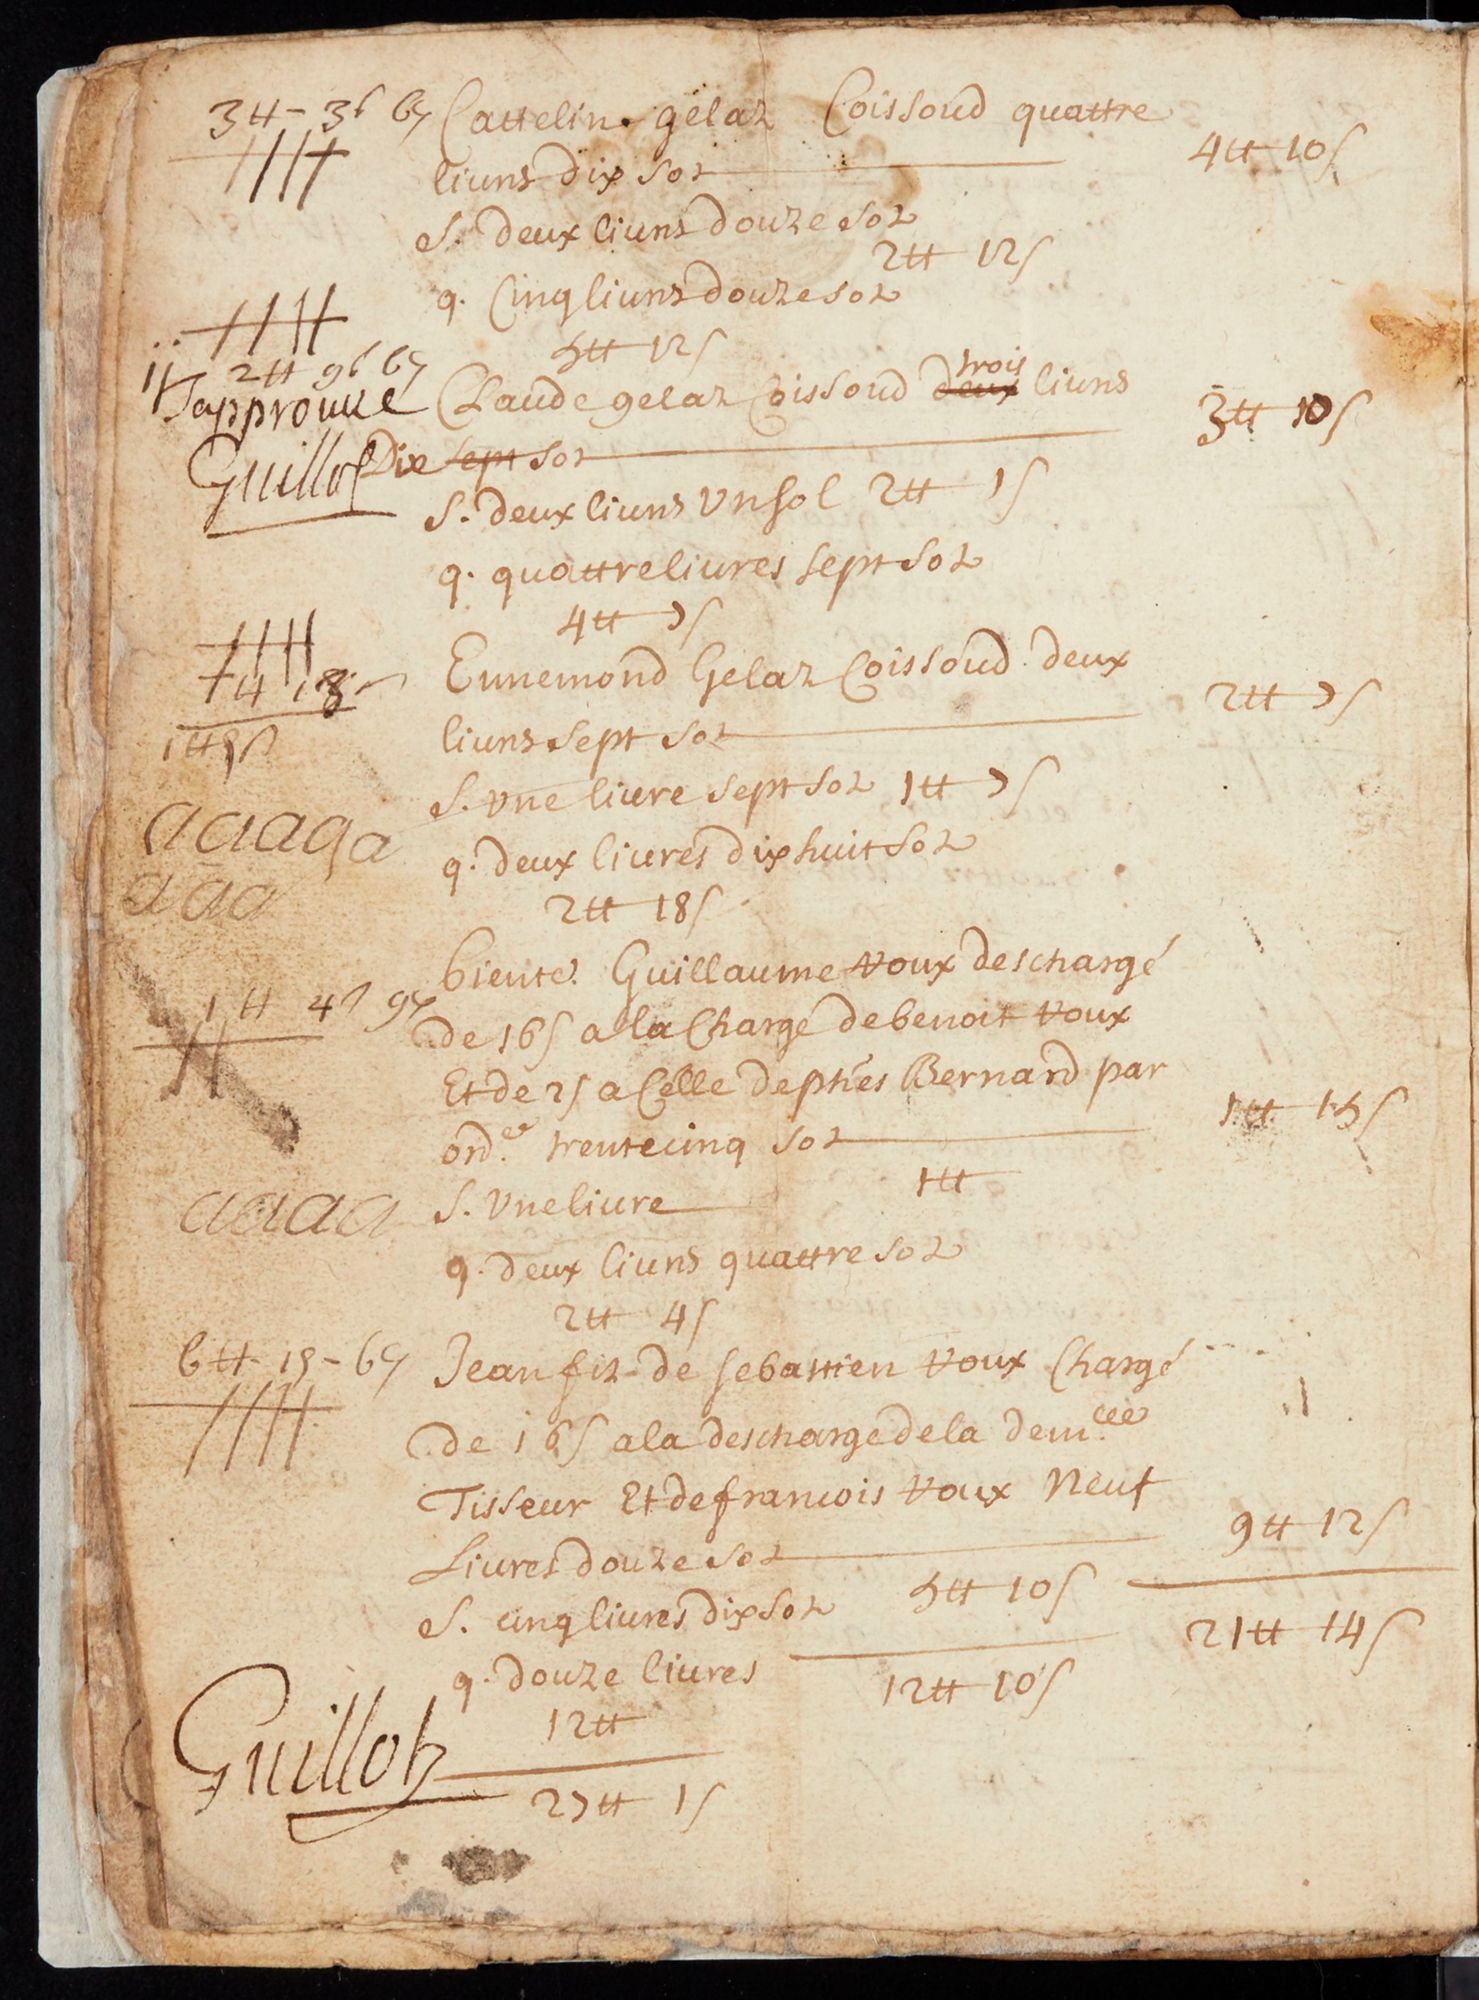 3tt - 3s 6d Cattelin gelaz Coissoud quattre
liures dix solz 4tt 10s
S. deux liures douze solz
2tt 12s
q. Cinq liures douze solz
5tt 12s
2tt 9s 6d
Japprouue Claude gelaz Coissoud deux trois liures 3tt 10s
Guillot Dix sept solz
S. deux liures Un sol 2tt 1s
q. quattre liures sept solz
4tt 7s
Ennemond Gelaz Coissoud deux
liures sept solz 2tt 7s
S. Une liure sept solz 1tt 7s
aaaga
q. deux liures dix huit solz
aaa
2tt 18s
Guillaume Voux deschargé
1tt 4s 9d
de 16s a la Charge de benoit Voux
Et de 2s a Celle de phes Bernard par
ordce trente cinq solz 1tt 15s
aaaa S. Une liure 1tt
q. deux liures quattre solz
2tt 4s
6tt - 19 - 6d Jean filz de sebastien Voux Chargé
de 16s a la descharge de la demlle
Tisseur Et de francois Voux Neuf
Liures douze solz 9tt 12s
S. cinq liures dix solz 5tt 10s
21tt 14s
q. douze liures 12tt 10s
12tt
Guillot
27tt 1s